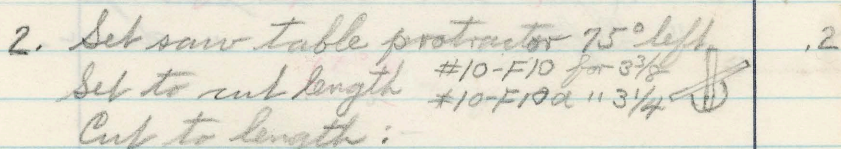 2. Set saw table protractor 75° left .2
Set to cut length #10-F10 for 3 3/8
#10-F10a " 3 1/4
Cut to length: